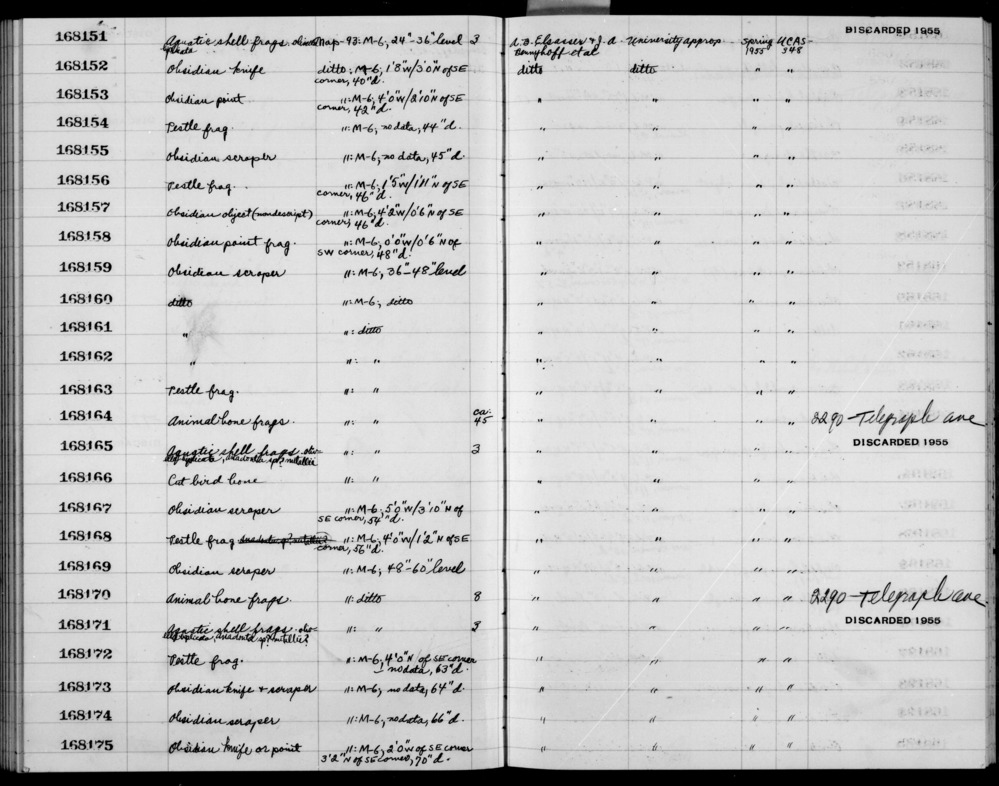 168151 Aquatic shell frags. olivella Nap-93: M-6, 24"-36" level 3 A.B. Elsasser & J.A. University approp. Spring UCAS- DISCARDED 1955
biplicata Bennyhoff et al 1955 348
168152 Obsidian knife ditto: M-6; 1'8"W/3'0"N of SE ditto ditto " "
corner, 40"d.
168153 Obsidian point ": M-6; 4'0"W/2'10"N of SE " " " "
corner, 42"d.
168154 Pestle frag. ": M-6; no data, 44"d. " " " "
168155 Obsidian scraper ": M-6; no data, 45"d. " " " "
168156 Pestle frag. ": M-6; 1'5"W/1'11"N of SE " " " "
corner, 46"d.
168157 Obsidian object (nondescript) ": M-6; 4'2"W/0'6"N of SE " " " "
corner, 46"d.
168158 Obsidian point frag. ": M-6; 0'0"W/0'6"N of " " " "
SW corner, 48"d.
168159 Obsidian scraper ": M-6; 36"-48" level " " " "
168160 ditto ": M-6; ditto " " " "
168161 " ": ditto " " " "
168162 " ": " " " " "
168163 Pestle frag. ": " " " " "
168164 Animal bone frags. ": " ca. 45 " " " " 2290-Telegraph ave
168165 Aquatic shell frags. oliv- ": " 3 " " " " DISCARDED 1955
168166 Cut bird bone ": " " " " "
168167 Obsidian scraper ": M-6; 5'0"W/3'10"N of " " " "
SE corner, 54"d.
168168 Pestle frag. ": M-6; 4'0"W/1'2"N of SE " " " "
corner, 56"d.
168169 Obsidian scraper ": M-6; 48"-60" level " " " "
168170 Animal bone frags. ": ditto 8 " " " " 2290-Telegraph ave.
168171 Aquatic shell frags. oliv- ": " 3 " " " " DISCARDED 1955
168172 Pestle frag. ": M-6; 4'0"N of SE corner " " " "
no data, 63"d.
168173 Obsidian knife & scraper ": M-6; no data, 64"d. " " " "
168174 Obsidian scraper ": M-6; no data, 66"d. " " " "
168175 Obsidian knife or point ": M-6; 2'0"W of SE corner " " " "
3'2"N of SE corner, 70"d.